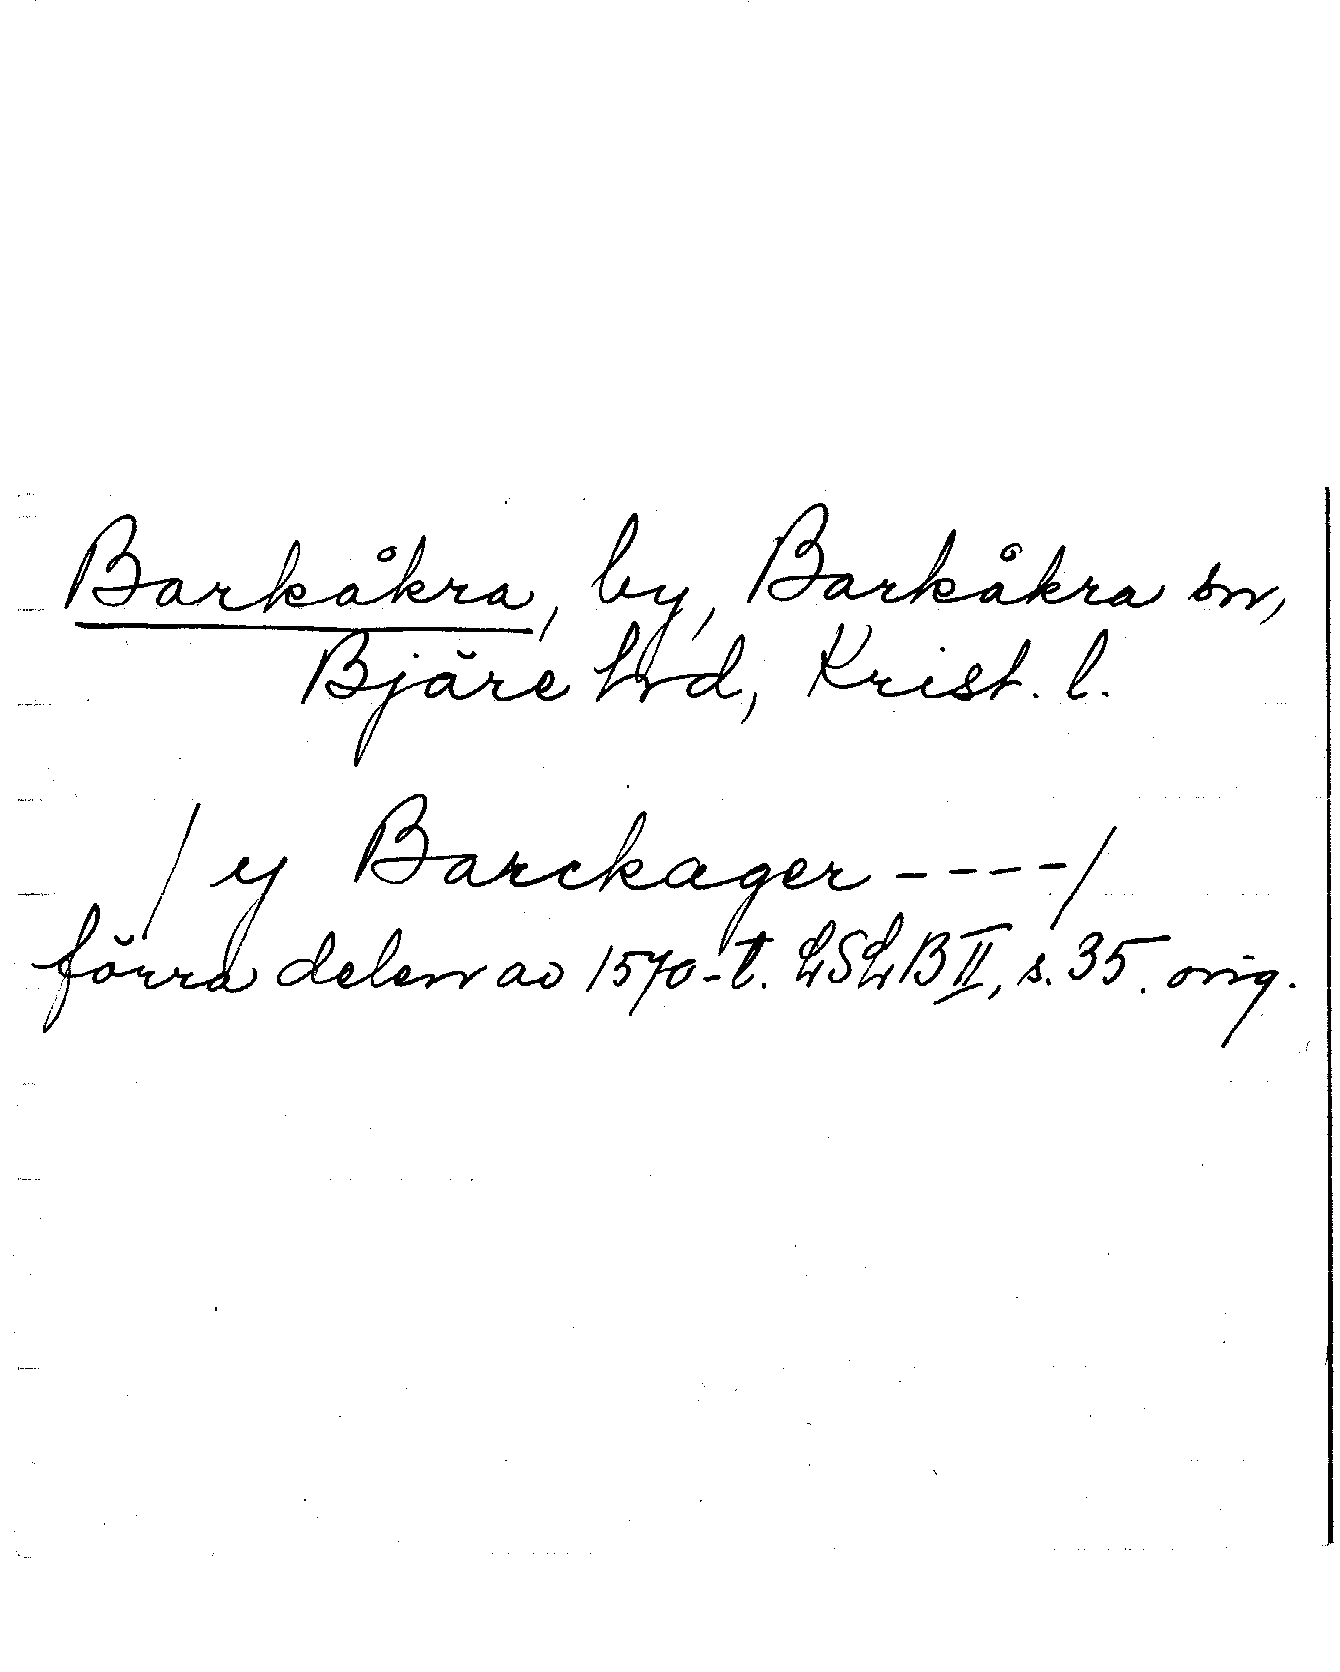 Barkåkra, by, Barkåkra sn,
Bjäre hrd, Krist. l.
/ y Barckager ---- /
förra delen av 1570-t. LSLB II, s. 35. orig.